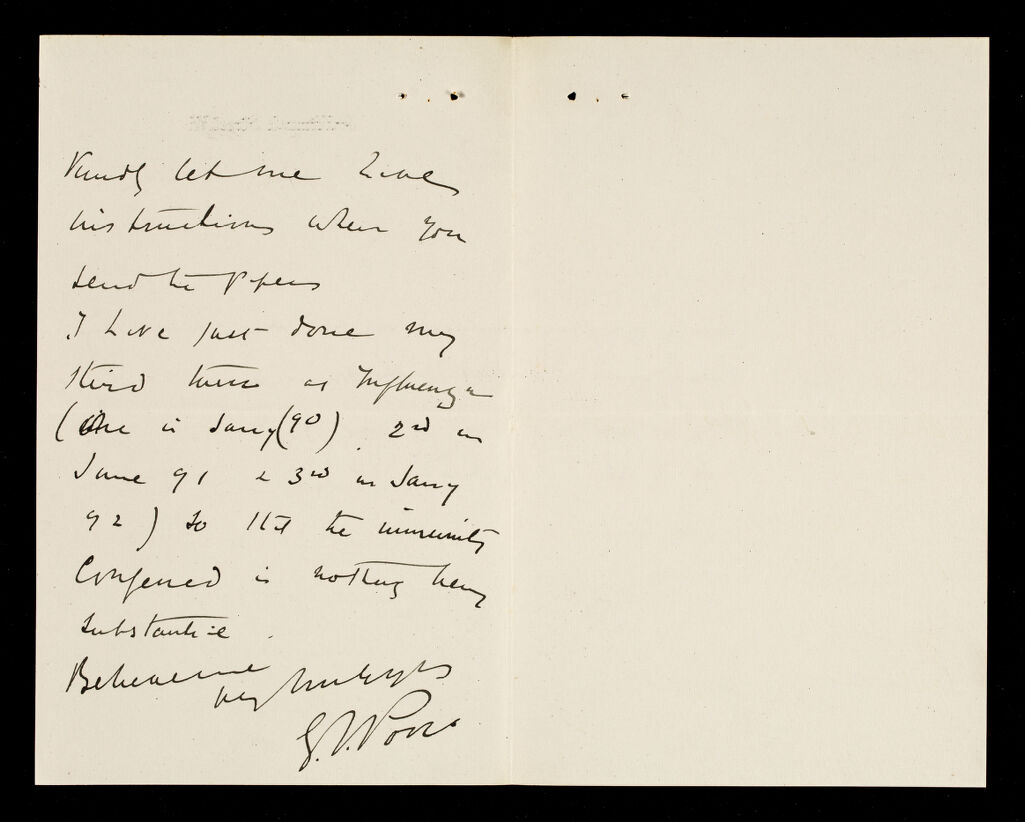 Kindly let me have
instructions when you
send the papers
I have just done my
third turn at Influenza
(One in Jany (90) 2nd in
June 91 & 3rd in Jany
92) so that the immunity
Conferred is nothing very
substantial.
Believe me
very truly yrs
G. V. Poore